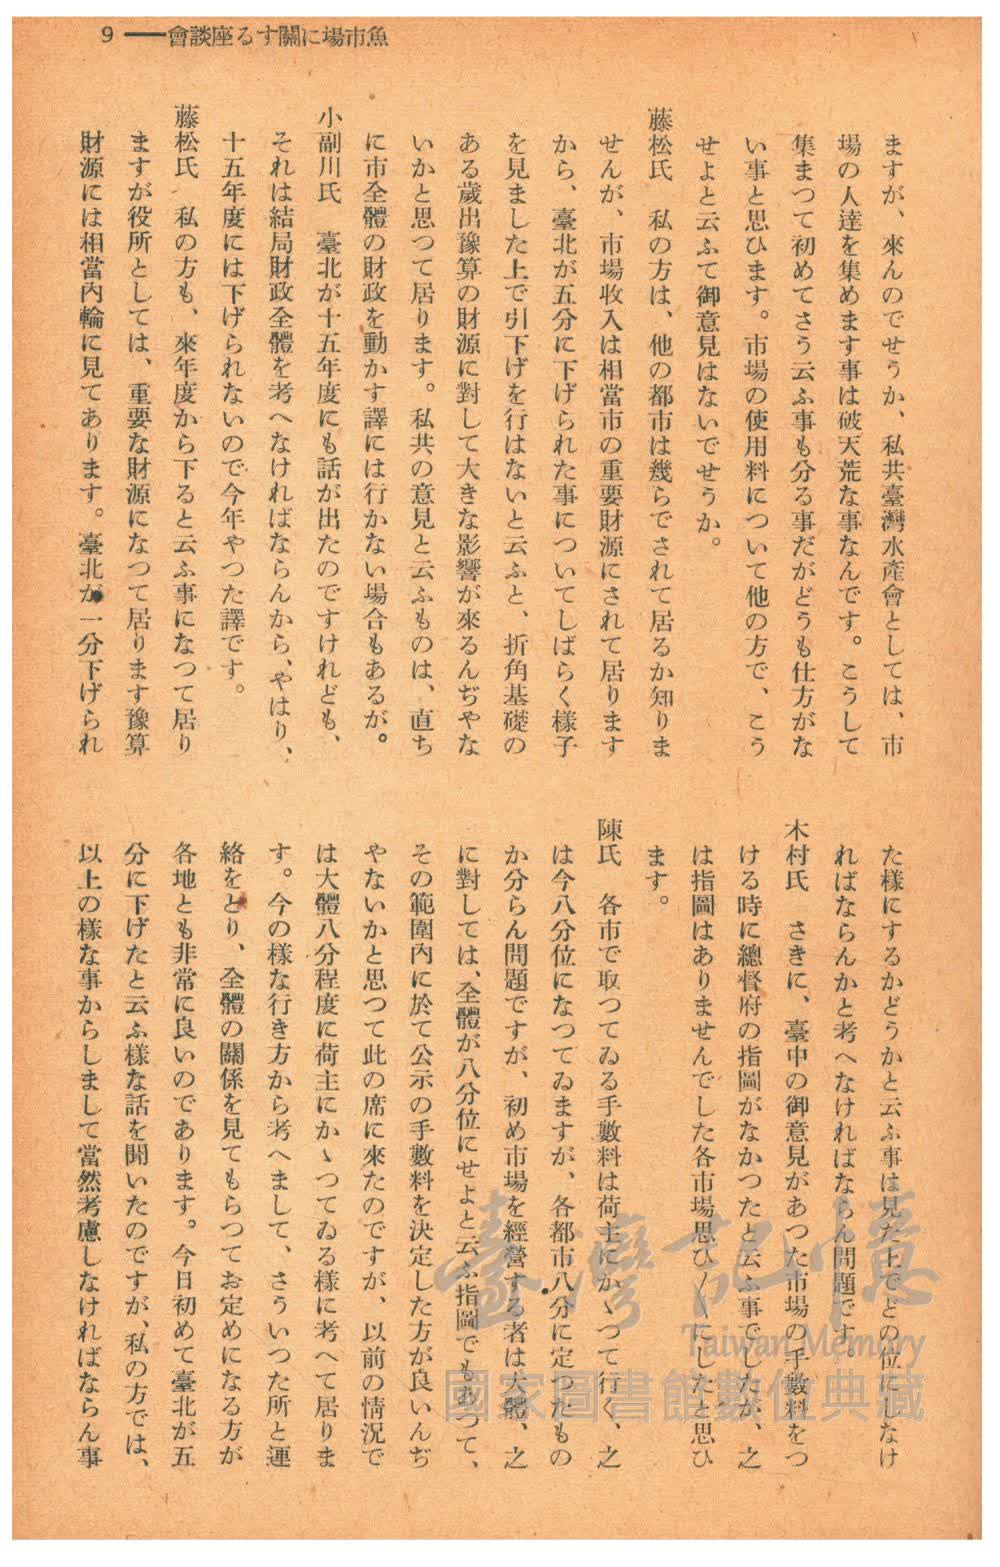 9 ――會談座るす關に場市魚
ますが、來んのでせうか、私共臺灣水產會としては、市
場の人達を集めます事は破天荒な事なんです。こうして
集まつて初めてさう云ふ事も分る事だがどうも仕方がな
い事と思ひます。市場の使用料について他の方で、こう
せよと云ふて御意見はないでせうか。
藤松氏　私の方は、他の都市は幾らでされて居るか知りま
せんが、市場收入は相當市の重要財源にされて居ります
から、臺北が五分に下げられた事についてしばらく樣子
を見ました上で引下げを行はないと云ふと、折角基礎の
ある歲出豫算の財源に對して大きな影響が來るんぢやな
いかと思つて居ります。私共の意見と云ふものは、直ち
に市全體の財政を動かす譯には行かない場合もあるが。
小副川氏　臺北が十五年度にも話が出たのですけれども、
それは結局財政全體を考へなければならんから、やはり、
十五年度には下げられないので今年やつた譯です。
藤松氏　私の方も、來年度から下ると云ふ事になつて居り
ますが役所としては、重要な財源になつて居ります豫算
財源には相當內輪に見てあります。臺北が一分下げられ
た樣にするかどうかと云ふ事は見た上でどの位にしなけ
ればならんかと考へなければならん問題です。
木村氏　さきに、臺中の御意見があつた市場の手數料をつ
ける時に總督府の指圖がなかつたと云ふ事でしたが、之
は指圖はありませんでした各市場思ひ〳〵にしたと思ひ
ます。
陳氏　各市で取つてゐる手數料は荷主にかゝつて行く、之
は今八分位になつてゐますが、各都市八分に定つたもの
か分らん問題ですが、初め市場を經營する者は大體、之
に對しては、全體が八分位にせよと云ふ指圖でもあつて、
その範圍內に於て公示の手數料を決定した方が良いんぢ
やないかと思つて此の席に來たのですが、以前の情況で
は大體八分程度に荷主にかゝつてゐる樣に考へて居りま
す。今の樣な行き方から考へまして、さういつた所と連
絡をとり、全體の關係を見てもらつてお定めになる方が
各地とも非常に良いのであります。今日初めて臺北が五
分に下げたと云ふ樣な話を聞いたのですが、私の方では、
以上の樣な事からしまして當然考慮しなければならん事
臺灣記憶
Taiwan Memory
國家圖書館數位典藏